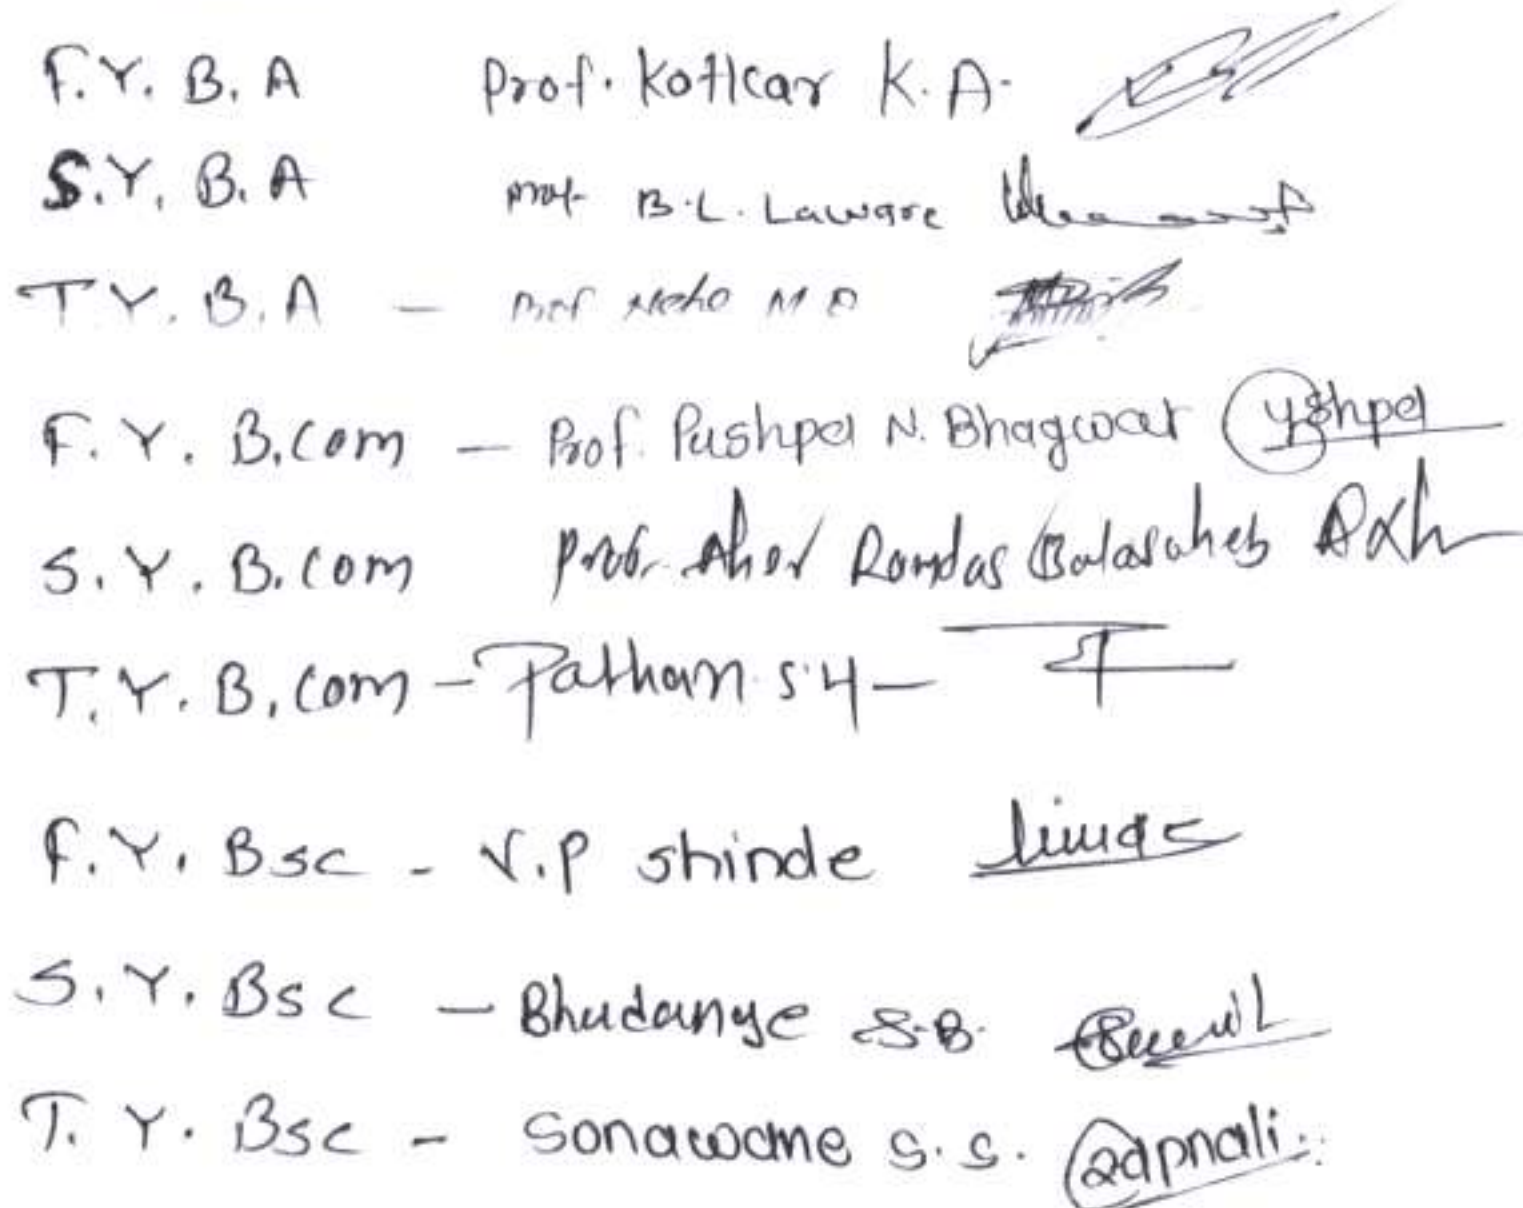 F.Y. B. A Prof. Kotkar K. A.
S.Y. B. A Prof. B. L. Laware
T.Y. B. A - Prof M
F. Y. B.Com - Prof. Pushpa N. Bhagwat
S. Y. B.Com Prof. Aher Ramdas Balasaheb
T. Y. B.Com - Pathan S.Y -
F. Y. Bsc - V.P shinde
S. Y. Bsc - Bhudange S.B.
T. Y. Bsc - Sonawane S. S. Sapnali